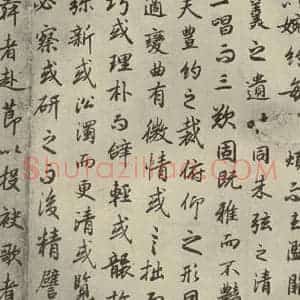 婉約每煩而去濫
羹之遺味同朱弦之清
一唱而三歎固既雅而不豔
夫豐約之裁俯仰之形因
適變曲有微情或言拙而
巧或理朴而辭輕或襲故
弥新或沿濁而更清或覽
必察或研之而後精譬
舞者赴節以投袂歌者
ShufaZidian.com